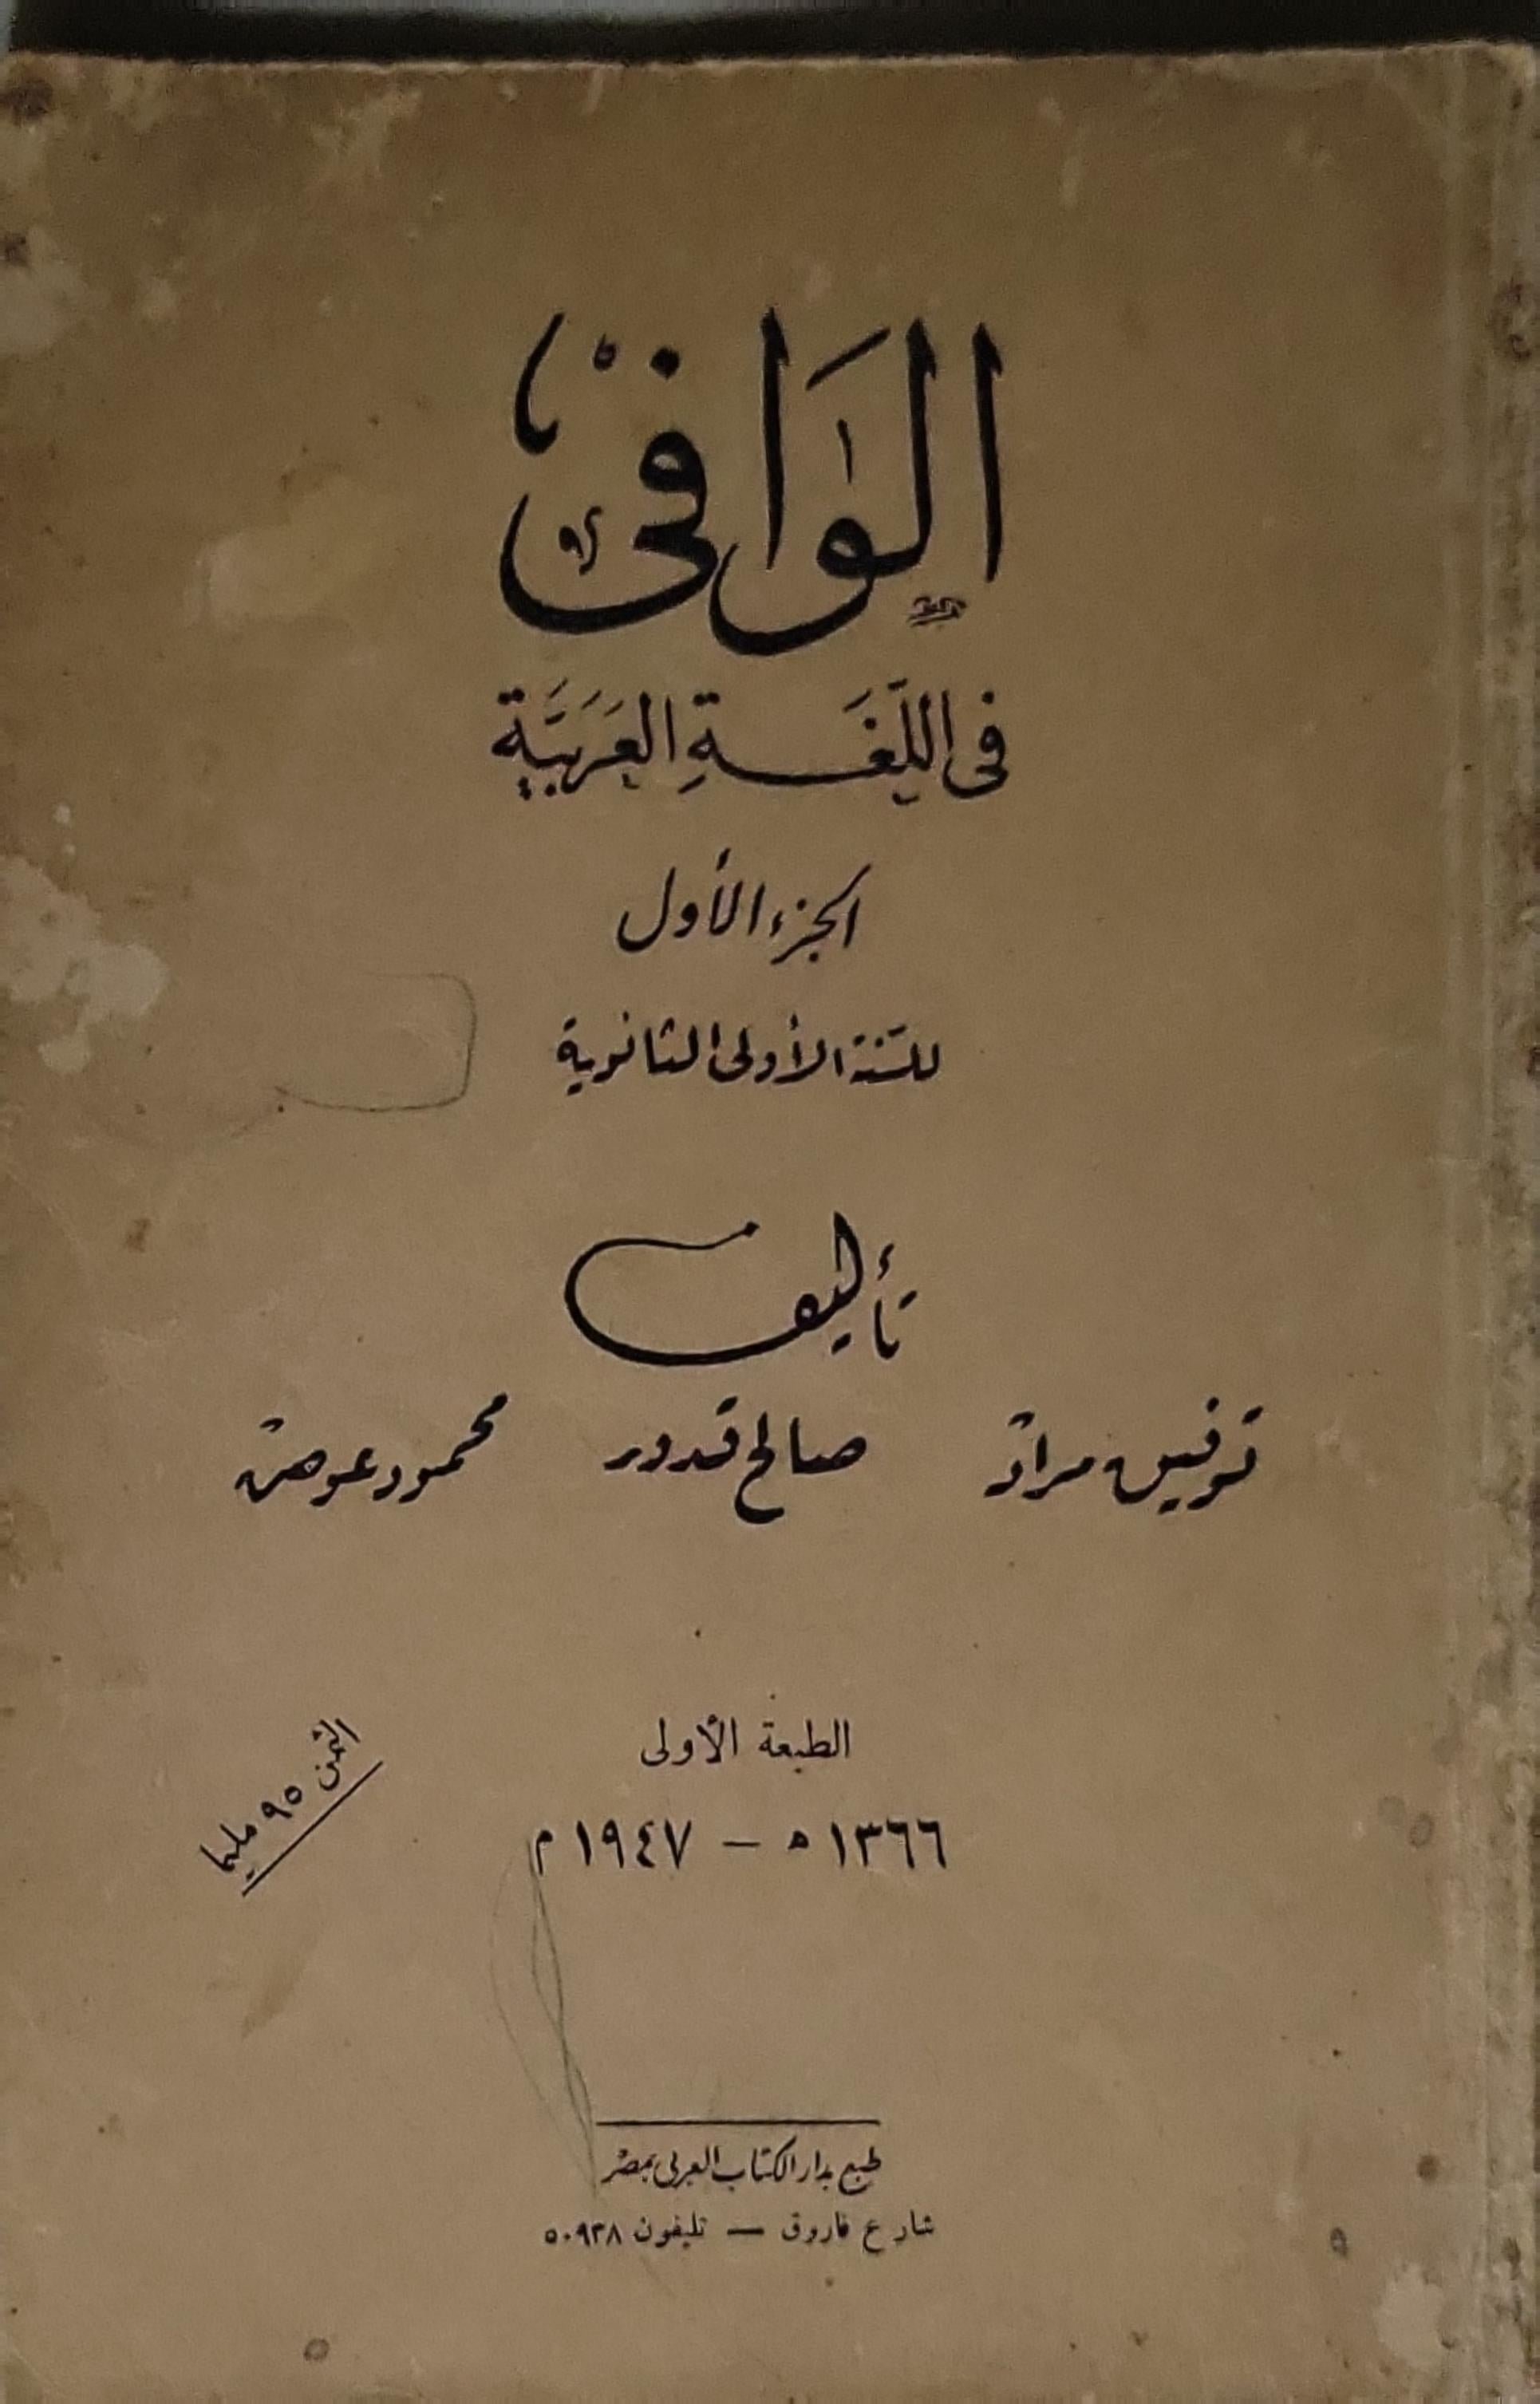 الوَافِى
فى اللّغَةِ العَرَبيَّةِ
الجزء الأول
للسّنة الأولى الثانوية
تأليف
توفيق مراد صالح قدور محمود عوض
الطبعة الأولى
١٣٦٦ ه — ١٩٤٧ م
الثمن ٩٥ مليما
طبع بدار الكتاب العربى بمصر
شارع فاروق — تليفون ٥٠٩٣٨